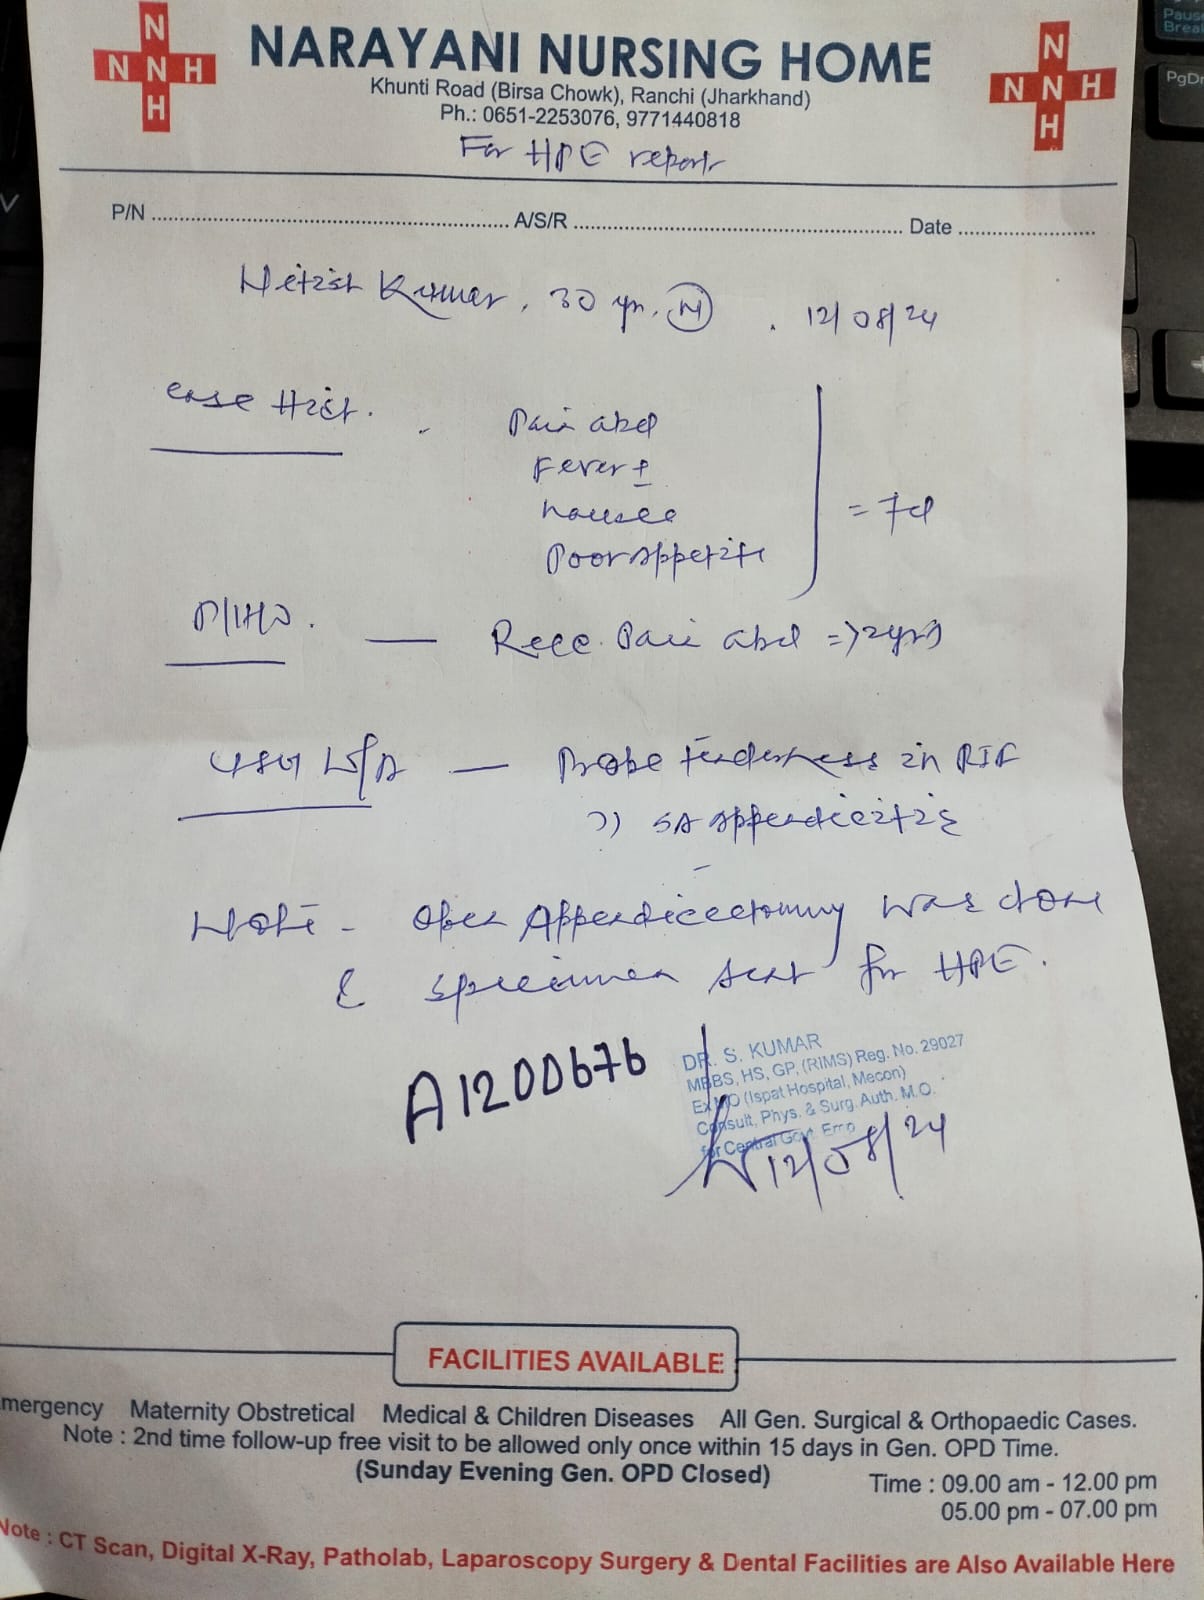 N
N N H
H
NARAYANI NURSING HOME
N
N N H
H
Khunti Road (Birsa Chowk), Ranchi (Jharkhand)
Ph.: 0651-2253076, 9771440818
For HPE report
P/N ........ A/S/R ........ Date ........
Kumar, 30 yr. M . 12/08/24
Case Hist.
Pain abd
Fever ±
nausea
Poor appetite
= 7d
P/H/O. — Recc. Pain abd => 2yrs
USG W/A — Probe tenderness in RIF
SA appendicitis
Note - Open Appendicectomy was done
& specimen sent for HPE.
A1200676
DR. S. KUMAR
MBBS, HS, GP, (RIMS) Reg. No. 29027
Ex MO (Ispat Hospital, Mecon)
Consult, Phys. & Surg. Auth. M.O.
for Central Gov. Emp
12/08/24
FACILITIES AVAILABLE
mergency Maternity Obstretical Medical & Children Diseases All Gen. Surgical & Orthopaedic Cases.
Note : 2nd time follow-up free visit to be allowed only once within 15 days in Gen. OPD Time.
(Sunday Evening Gen. OPD Closed)
Time : 09.00 am - 12.00 pm
05.00 pm - 07.00 pm
Note : CT Scan, Digital X-Ray, Patholab, Laparoscopy Surgery & Dental Facilities are Also Available Here
Pause
Break
PgDn